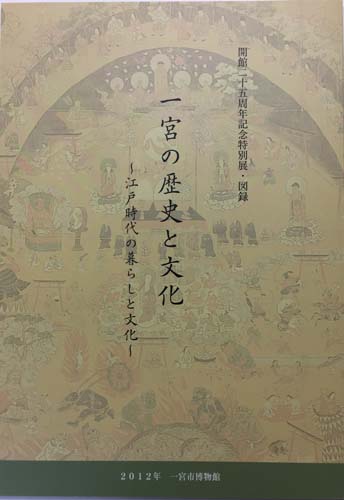 開館二十五周年記念特別展・図録
一宮の歴史と文化
〜江戸時代の暮らしと文化〜
2012年 一宮市博物館